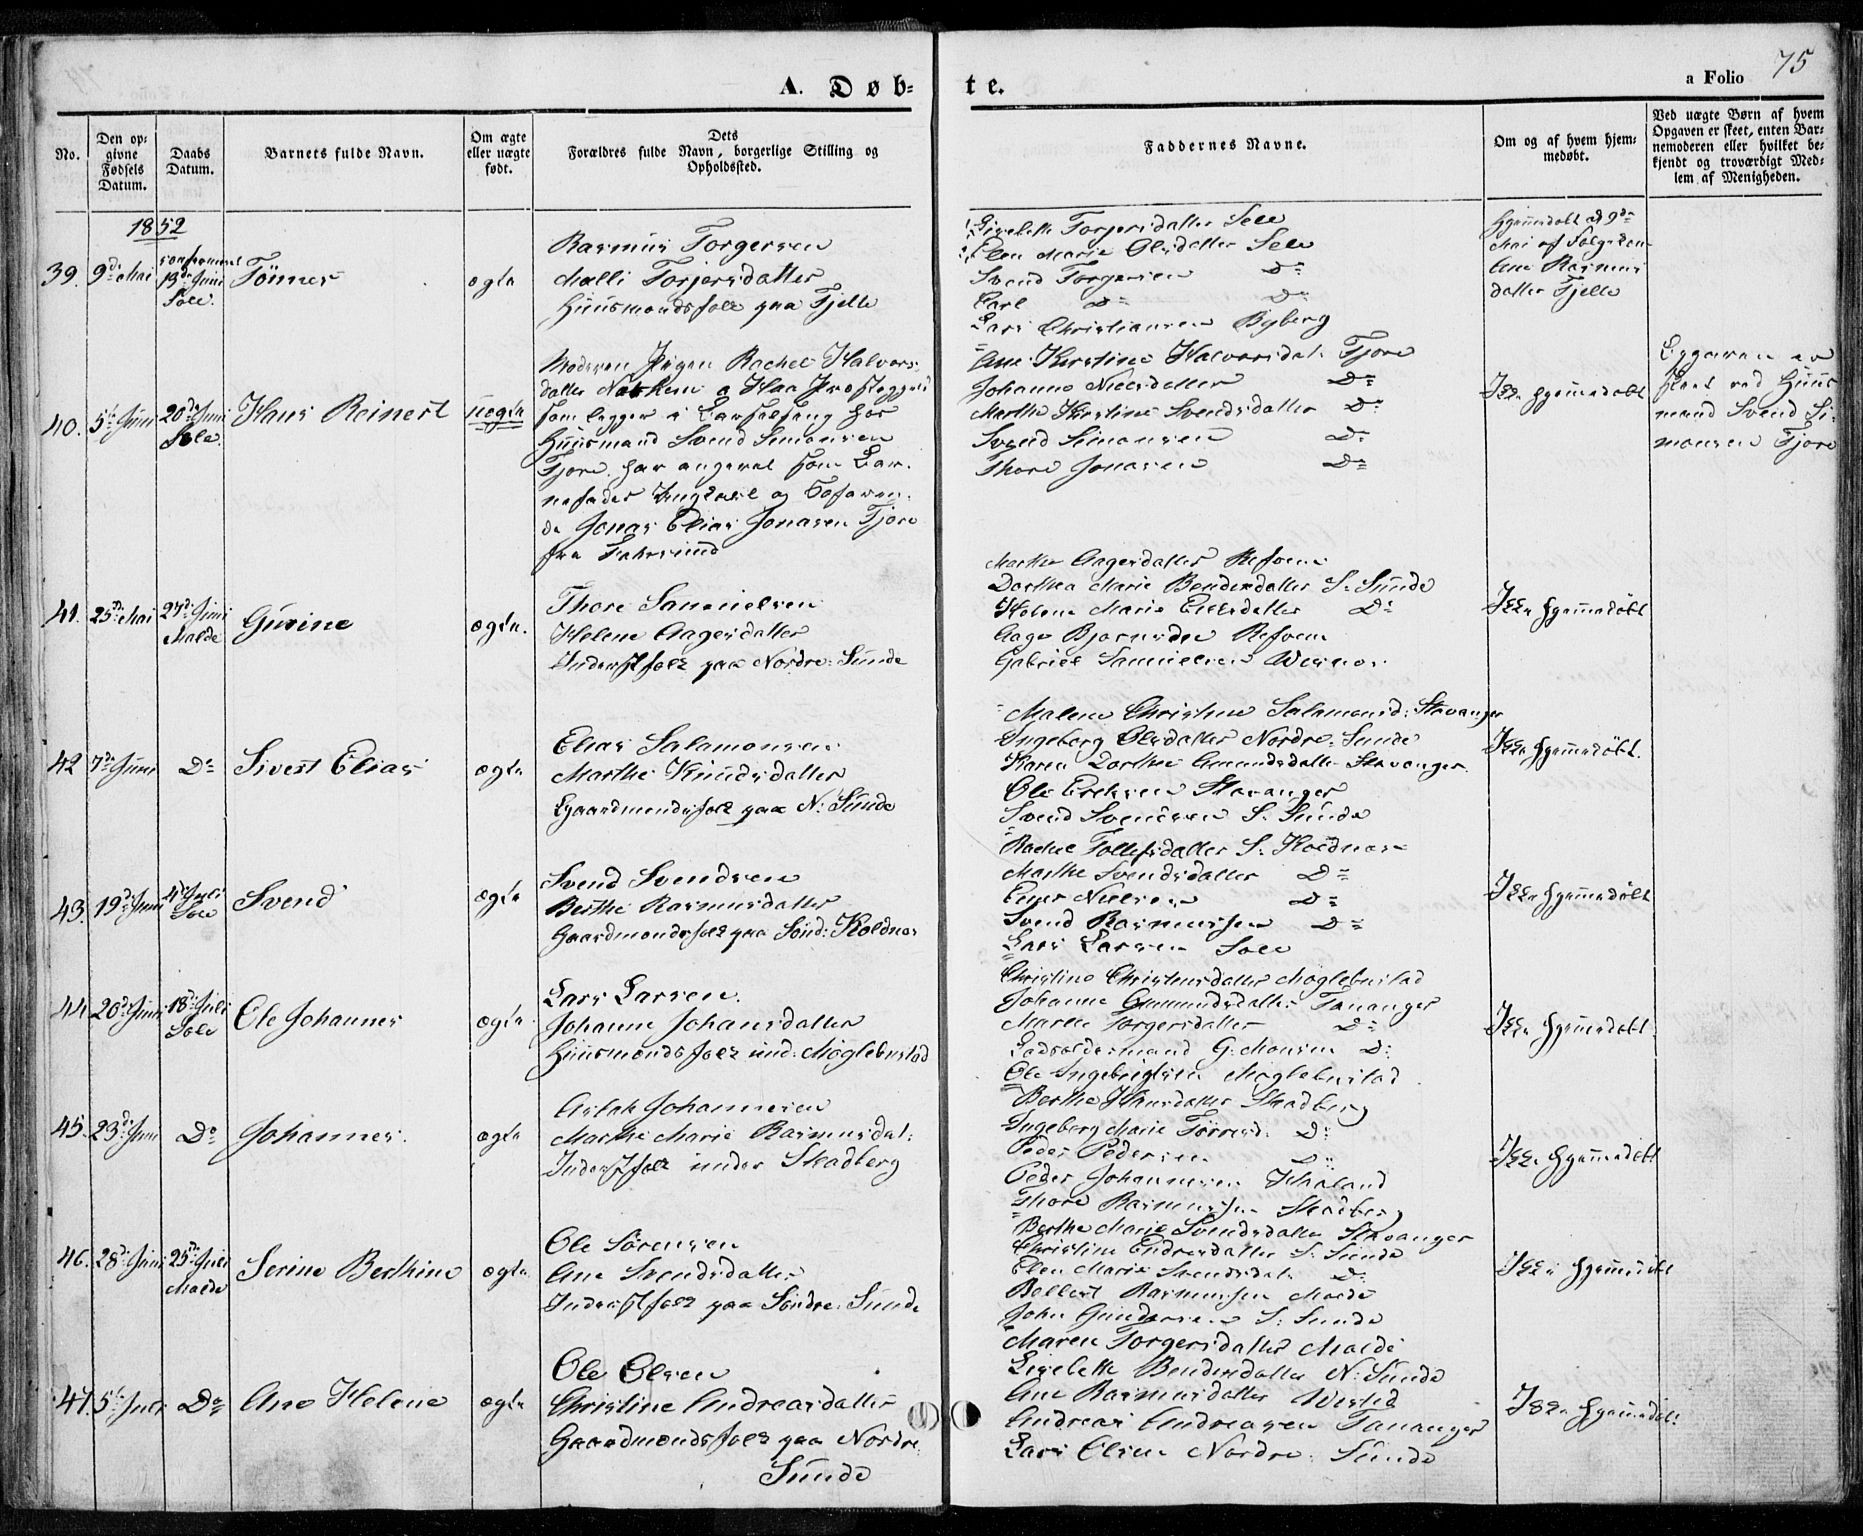 75
A. Døb=
te.
a Folio
No.
Den op=
givne
Fødsels
Datum.
Daabs
Datum.
Barnets fulde Navn.
Om ægte
eller uægte
født.
Dets
Forældres fulde Navn, borgerlige Stilling og
Opholdssted.
Faddernes Navne.
Om og af hvem hjem=
medøbt.
Ved uægte Børn af hvem
Opgaven er skeet, enten Bar=
nemoderen eller hvilket be=
kjendt og troværdigt Med=
lem af Menigheden.
1852
39.
9de Mai
confirmeret
13de Juni
Sole.
Tönnes
ægte
Rasmus Torgersen
Malli Torjersdatter
Huusmandsfolk paa Fjelle
Lisebeth Torjersdatter Sele
Elen Marie Olsdatter Sele
Svend Torgersen Do
Carl Do Do
Lars Christiansen Byberg
Hjemmedøbt d 9de
Mai af
Ane Rasmus
datter Fjelle
40.
5te Juni
20de Juni
Sole
Hans Reinert
uægte
Moderen Pigen Rachel Halvors
datter Nærken a Haa Præstegjeld
som ligger i Barselseng hos
Huusmand Svend Simonsen
Tjore, har angivet som Bar
nefader Ungkarl og Søfaren
de Jonas Elias Jonasen Tjore
fra Farsund
Ane Kirstine Halvorsdat. Tjore
Johanne Nielsdatter Do
Marthe Kirstine Svendsdatter Do
Svend Simonsen Do
Thore Jonasen Do
Ikke hjemmedøbt
Opgaven er
skeet ved Huus
mand Svend Si
monsen Tjore
41.
25de Mai
27de Juni
Malde
Gurine
ægte.
Thore Samuelsen
Helene Aagesdatter
Inderstfolk paa Nordre Sunde
Marthe Aagesdatter Refvem
Dorthea Marie Bendixdatter S. Sunde
Helene Marie Do
Aage Bjørnsen Refvem
Gabriel Samuelsen
Ikke hjemmedøbt
42
7de Juni
Do
Sivert Elias
ægte
Elias Salamonsen
Marthe Knudsdatter
Gaardmandsfolk paa N. Sunde
Malene Christine Salamonsd. Stavanger
Ingeborg Olsdatter Nordre Sunde
Karen Dorthe Amundsdatter Stavanger
Ole Eriksen Stavanger
Svend Svendsen S. Sunde
Ikke hjemmedøbt.
43.
19de Juni
4de Juli
Sole
Svend
ægte
Svend Svendsen
Berthe Rasmusdatter
Gaardmandsfolk paa Sönd: Koldnæs
Rachel Tollefsdatter S. Koldnæs
Marthe Svendsdatter Do
Einer Nielsen Do
Svend Rasmussen Do
Lars Larsen Sole
Ikke hjemmedøbt
44.
20de Juni
18de Juli
Sole
Ole Johannes
ægte
Lars Larsen.
Johanne Johansdatter
Huusmandsfolk und: Møglebustad
Christine Christensdatter Møglebustad
Johanne Gummundsdatter Tananger
Maren Torgersdatter Do
Lodsoldermand G. Monsen Do
Ole Ingebrigtsen Møglebustad
Ikke hjemmedøbt
45.
23de Juni
Do
Johannes.
ægte
Aslak Johannesen
Marthe Marie Rasmusdat.
Inderstfolk under Skadberg
Berthe Hansdatter Skadberg
Ingeborg Marie Törresd. Do
Peder Pedersen Do
Peder Johannesen Haaland
Thore Rasmussen Skadberg
Ikke hjemmedøbt
46.
28de Juni
25de Juli
Malde
Serine Berthine
ægte.
Ole Sörensen
Ane Svendsdatter
Inderstfolk paa Söndre Sunde
Berthe Marie Svendsdatter Stavanger
Christine Endresdatter S. Sunde
Elen Marie Svendsdat. Do
Bollert Rasmussen Malde
John Gundersen S. Sunde
Ikke hjemmedøbt
47.
5te Juli
Do
Ane Helene
ægte
Ole Olsen
Christine Andreasdatter
Gaardmandsfolk paa Nordre
Sunde
Maren Torgersdatter Malde
Lisebeth Bendixdatter N. Sunde
Ane Rasmusdatter
Andreas Andreasen Tananger
Lars Olsen Nordre Sunde
Ikke hjemmedøbt